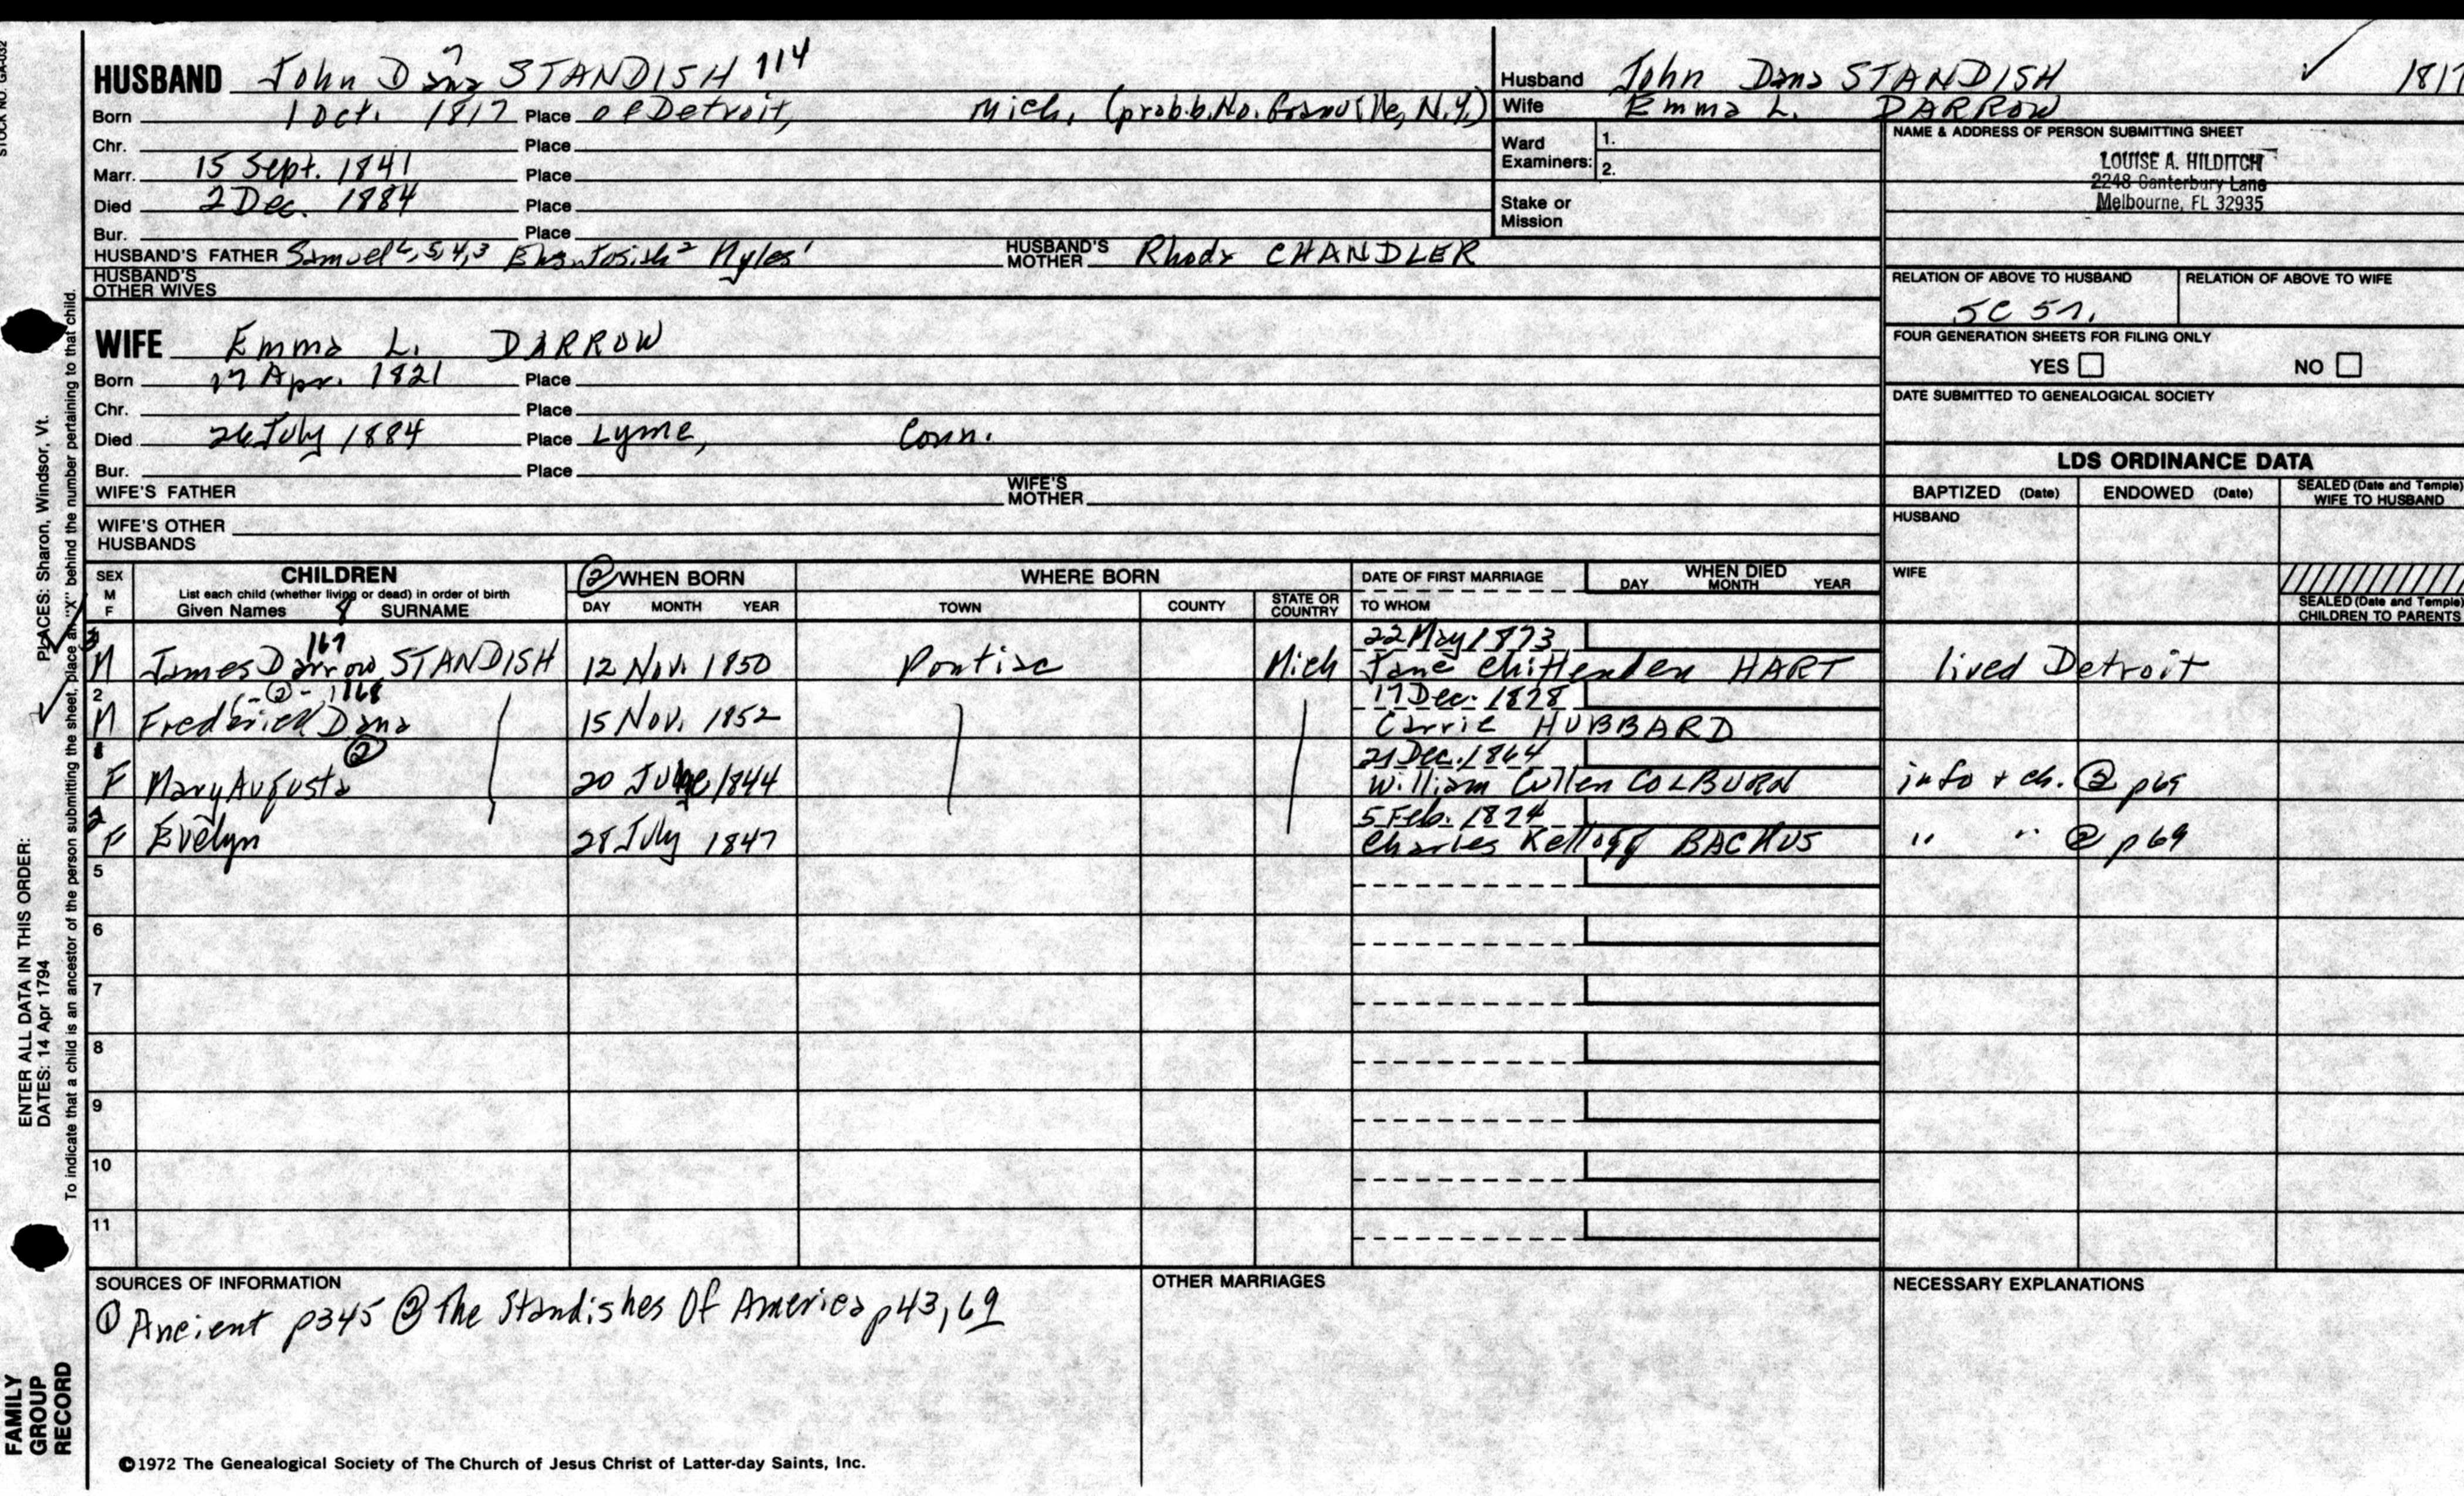 STOCK NO. GA-032
HUSBAND John Dana 7 STANDISH 114
Born 1 Oct. 1817 Place of Detroit, Mich. (prob.b.No. Granville, N.Y.)
Chr. Place
Marr. 15 Sept. 1841 Place
Died 2 Dec. 1884 Place
Bur. Place
HUSBAND'S FATHER Samuel 6,5,4,3 Josiah 2 Myles 1 HUSBAND'S MOTHER Rhoda CHANDLER
HUSBAND'S OTHER WIVES
WIFE Emma L. DARROW
Born 17 Apr. 1821 Place
Chr. Place
Died 26 July 1884 Place Lyme, Conn.
Bur. Place
WIFE'S FATHER WIFE'S MOTHER
WIFE'S OTHER HUSBANDS
Husband John Dana STANDISH 1817
Wife Emma L. DARROW
Ward Examiners: 1.
2.
Stake or Mission
NAME & ADDRESS OF PERSON SUBMITTING SHEET
LOUISE A. HILDITCH
2248 Canterbury Lane
Melbourne, FL 32935
RELATION OF ABOVE TO HUSBAND RELATION OF ABOVE TO WIFE
5C 5r.
FOUR GENERATION SHEETS FOR FILING ONLY
YES NO
DATE SUBMITTED TO GENEALOGICAL SOCIETY
LDS ORDINANCE DATA
BAPTIZED (Date) ENDOWED (Date) SEALED (Date and Temple) WIFE TO HUSBAND
HUSBAND
WIFE
SEALED (Date and Temple) CHILDREN TO PARENTS
SEX M F
CHILDREN
List each child (whether living or dead) in order of birth
Given Names 8 SURNAME
② WHEN BORN
DAY MONTH YEAR
WHERE BORN
TOWN COUNTY STATE OR COUNTRY
DATE OF FIRST MARRIAGE
TO WHOM
WHEN DIED
DAY MONTH YEAR
3 167 22 May 1873
M James Darrow STANDISH 12 Nov. 1850 Pontiac Mich Jane Chittenden HART lived Detroit
2 -②- 1168 17 Dec. 1878
M Frederick Dana 15 Nov. 1852 Carrie HUBBARD
1 ② 21 Dec. 1864
F Mary Augusta 20 June 1844 William Cullen COLBURN info + ch. ② p69
2 5 Feb. 1874
F Evelyn 28 July 1847 Charles Kellogg BACKUS " " ② p69
5
6
7
8
9
10
11
SOURCES OF INFORMATION
① Ancient p345 ② The Standishes Of America p43,69
OTHER MARRIAGES
NECESSARY EXPLANATIONS
©1972 The Genealogical Society of The Church of Jesus Christ of Latter-day Saints, Inc.
ENTER ALL DATA IN THIS ORDER:
DATES: 14 Apr 1794 PLACES: Sharon, Windsor, Vt.
To indicate that a child is an ancestor of the person submitting the sheet, place an "X" behind the number pertaining to that child.
FAMILY GROUP RECORD